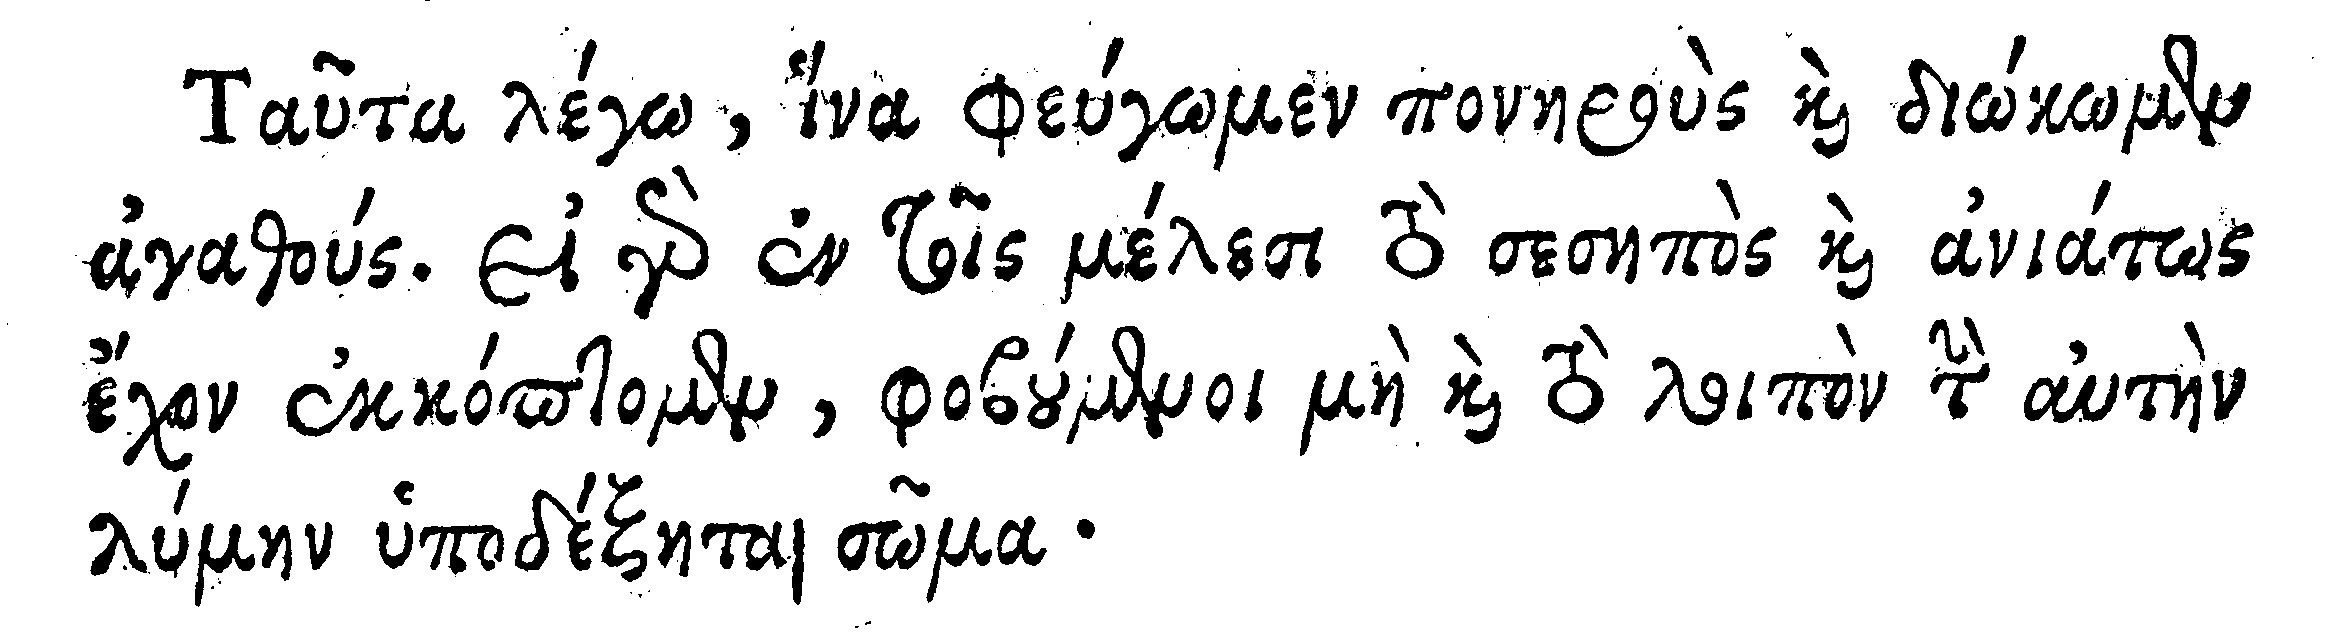 Ταῦτα λέγω, ἵνα φεύγωμεν πονηροὺς ϗ̀ διώκωμεν
ἀγαθούς. Εἰ γὰρ ἐν τοῖς μέλεσι τὸ σεσηπὸς ϗ̀ ἀνιάτως
ἔχον ἐκκόπτομεν, φοβούμενοι μὴ ϗ̀ τὸ λοιπὸν τὴν αὐτὴν
λύμην ὑποδέξηται σῶμα.